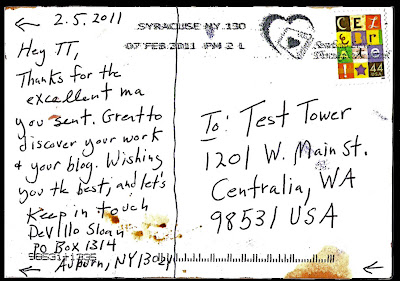 2.5.2011
Hey TT,
Thanks for the
excellent ma
you sent. Great to
discover your work
& your blog. Wishing
you the best, and let's
Keep in touch
DeVillo Sloan
PO Box 1314
Auburn, NY 13021
SYRACUSE NY 130
07 FEB 2011 PM 2 L
CELEBRATE!
44
To: Test Tower
1201 W. Main St.
Centralia, WA
98531 USA